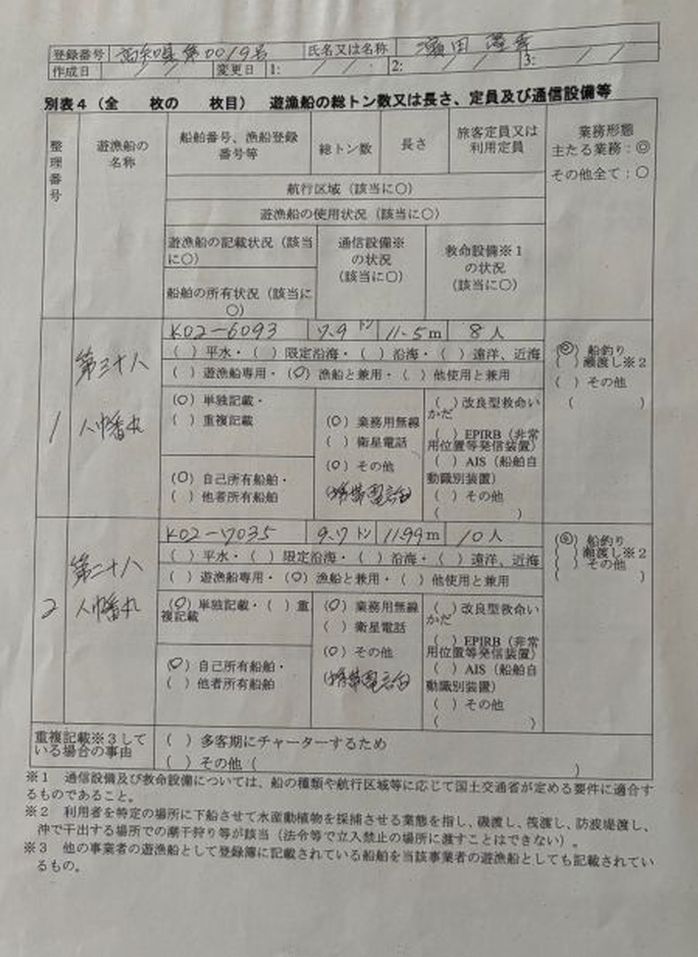 登録番号 高知県第0019号 氏名又は名称 濵田
作成日 / / 変更日 1: / / 2: / / 3: / /
別表４（全　　枚の　　枚目）　遊漁船の総トン数又は長さ、定員及び通信設備等
整理番号
遊漁船の名称
船舶番号、漁船登録番号等
総トン数
長さ
旅客定員又は利用定員
業務形態
主たる業務：◎
その他全て：○
航行区域（該当に○）
遊漁船の使用状況（該当に○）
遊漁船の記載状況（該当に○）
通信設備※の状況（該当に○）
救命設備※１の状況（該当に○）
船舶の所有状況（該当に○）
1
第三十八
八幡丸
K02-6093 7.9トン 11.5m 8人
（ ）平水・（ ）限定沿海・（ ）沿海・（ ）遠洋、近海
（ ）遊漁船専用・（○）漁船と兼用・（ ）他使用と兼用
（○）単独記載・
（ ）重複記載
（○）自己所有船舶・
（ ）他者所有船舶
（○）業務用無線
（ ）衛星電話
（○）その他
（携帯電話）
（ ）改良型救命いかだ
（ ）EPIRB（非常用位置等発信装置）
（ ）AIS（船舶自動識別装置）
（ ）その他
（　　　　　）
（◎）船釣り
（ ）瀬渡し※２
（ ）その他
（　　　　）
2
第二十八
八幡丸
K02-7035 9.7トン 11.99m 10人
（ ）平水・（ ）限定沿海・（ ）沿海・（ ）遠洋、近海
（ ）遊漁船専用・（○）漁船と兼用・（ ）他使用と兼用
（○）単独記載・（ ）重複記載
（○）自己所有船舶・
（ ）他者所有船舶
（○）業務用無線
（ ）衛星電話
（○）その他
（携帯電話）
（ ）改良型救命いかだ
（ ）EPIRB（非常用位置等発信装置）
（ ）AIS（船舶自動識別装置）
（ ）その他
（　　　　　）
（◎）船釣り
（ ）瀬渡し※２
（ ）その他
（　　　　）
重複記載※３している場合の事由
（ ）多客期にチャーターするため
（ ）その他（　　　　　　　　　　）
※１　通信設備及び救命設備については、船の種類や航行区域等に応じて国土交通省が定める要件に適合するものであること。
※２　利用者を特定の場所に下船させて水産動植物を採捕させる業態を指し、磯渡し、筏渡し、防波堤渡し、
沖で干出する場所での潮干狩り等が該当（法令等で立入禁止の場所に渡すことはできない）。
※３　他の事業者の遊漁船として登録簿に記載されている船舶を当該事業者の遊漁船としても記載されているもの。